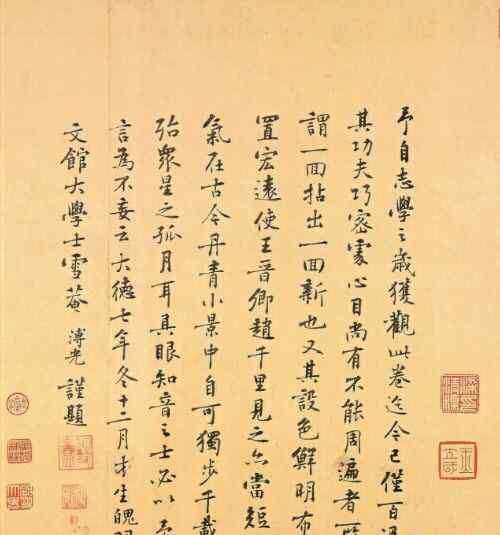 予自志學之歲獲觀此卷迄今已僅百
其功夫巧密處心目尚有不能周遍者
謂一回拈出一回新也又其設色鮮明布
置宏遠使王晉卿趙千里見之亦當短
氣在古今丹青小景中自可獨步千載
殆衆星之孤月耳具眼知音之士必以
言為不妄云大德七年冬十二月才生魄
文館大學士雪菴溥光謹題